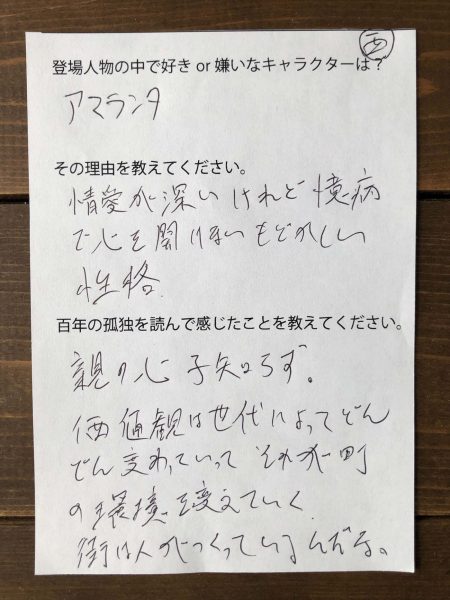 西
登場人物の中で好き or 嫌いなキャラクターは?
アマランタ
その理由を教えてください。
情愛が深いけれど憶病
で心を開けないもどかしい
性格
百年の孤独を読んで感じたことを教えてください。
親の心子知らず。
価値観は世代によってどん
どん変わっていって それが町
の環境を変えていく
街は人がつくっているんだな。